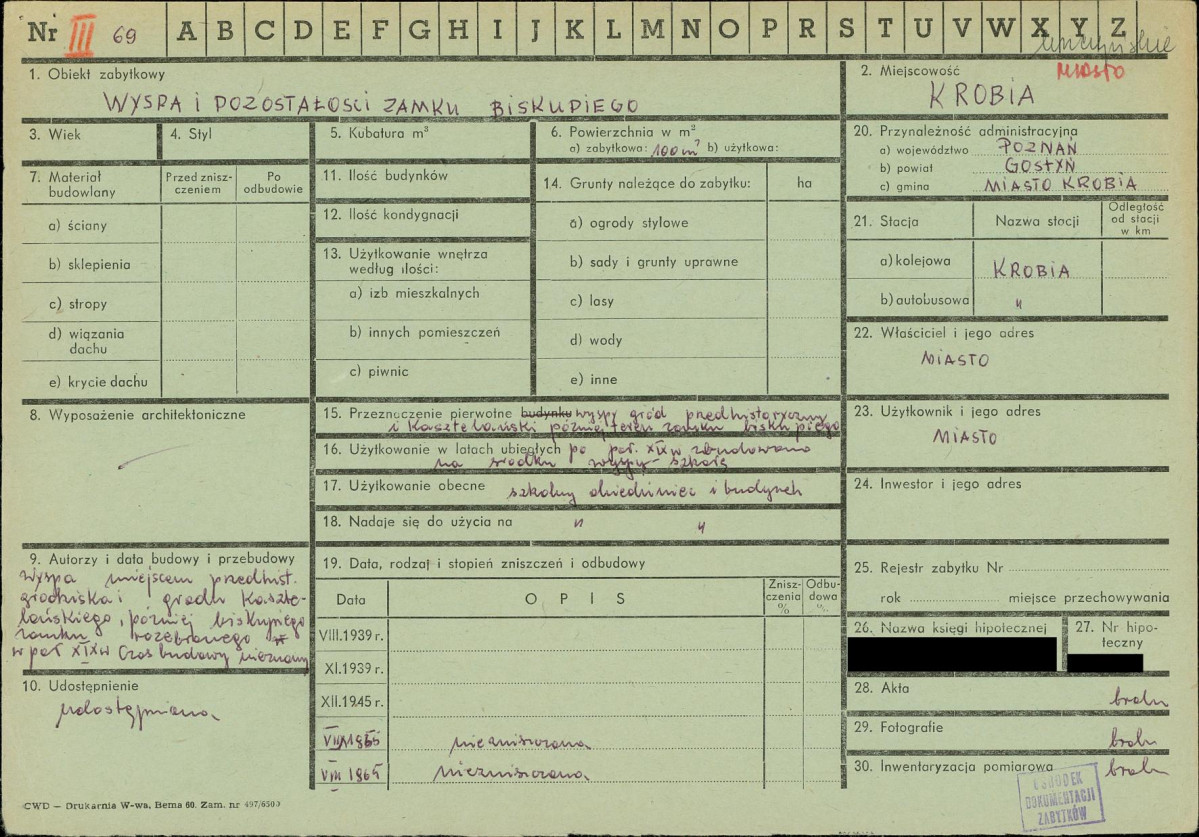 Nr III 69 A B C D E F G H I J K L M N O P R S T U V W X Y Z
MIASTO
1. Obiekt zabytkowy
WYSPA I POZOSTAŁOŚCI ZAMKU BISKUPIEGO
2. Miejscowość
KROBIA
3. Wiek
4. Styl
5. Kubatura m³
6. Powierzchnia w m²
a) zabytkowa: 100m² b) użytkowa:
7. Materiał budowlany
Przed zniszczeniem
Po odbudowie
a) ściany
b) sklepienia
c) stropy
d) wiązania dachu
e) krycie dachu
8. Wyposażenie architektoniczne
9. Autorzy i data budowy i przebudowy
wyspa miejscem przedhist.
grodziska i grodu Kaszte-
lańskiego, później biskupiego
zamku rozebranego
w poł XIXw Czas budowy nieznany
10. Udostępnienie
udostępniona
11. Ilość budynków
12. Ilość kondygnacji
13. Użytkowanie wnętrza
według ilości:
a) izb mieszkalnych
b) innych pomieszczeń
c) piwnic
14. Grunty należące do zabytku: ha
a) ogrody stylowe
b) sady i grunty uprawne
c) lasy
d) wody
e) inne
15. Przeznaczenie pierwotne budynku wyspy gród predhistoryczny
i Kasztelański później teren zamku biskupiego
16. Użytkowanie w latach ubiegłych po poł. XIX w zbudowano
na środku wyspy szkołę
17. Użytkowanie obecne szkolny dziedziniec i budynek
18. Nadaje się do użycia na " "
19. Data, rodzaj i stopień zniszczeń i odbudowy
Data
OPIS
Zniszczenia %
Odbudowa %
VIII.1939 r.
XI.1939 r.
XII.1945 r.
niezniszczona
VIII 1965 niezniszczona
20. Przynależność administracyjna
a) województwo POZNAŃ
b) powiat GOSTYŃ
c) gmina MIASTO KROBIA
21. Stacja
Nazwa stacji
Odległość od stacji w km
a) kolejowa KROBIA
b) autobusowa "
22. Właściciel i jego adres
MIASTO
23. Użytkownik i jego adres
MIASTO
24. Inwestor i jego adres
25. Rejestr zabytku Nr
rok miejsce przechowywania
26. Nazwa księgi hipotecznej
27. Nr hipo-
teczny
28. Akta brak
29. Fotografie brak
30. Inwentaryzacja pomiarowa brak
OŚRODEK
DOKUMENTACJI
ZABYTKÓW
CWD — Drukarnia W-wa, Bema 60. Zam. nr 497/6500